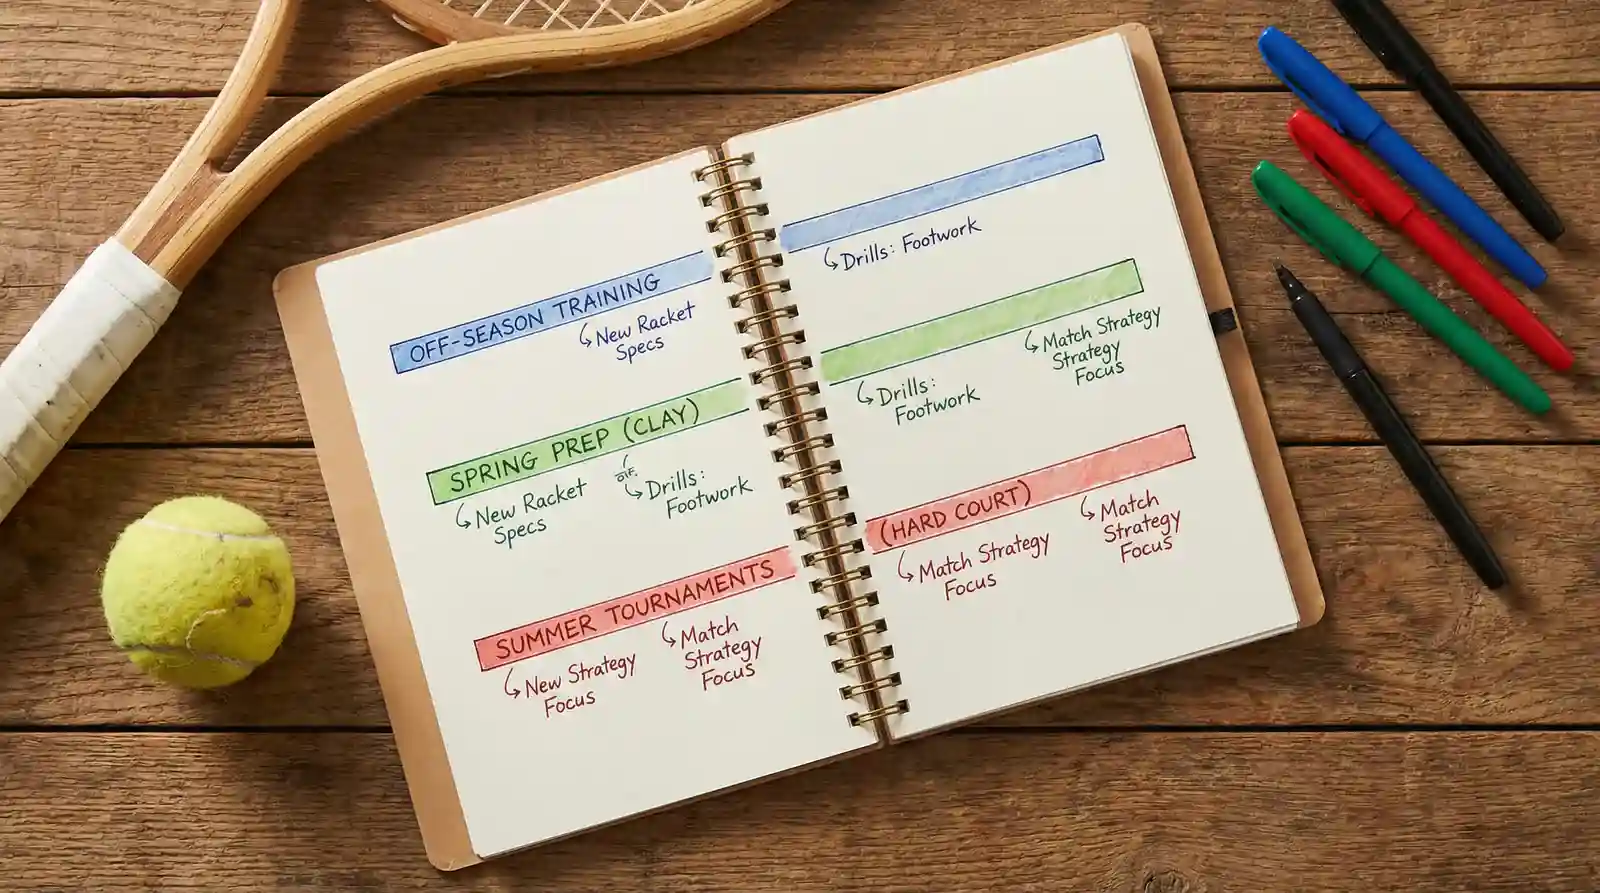 OFF-SEASON TRAINING
New Racket
Specs
Drills: Footwork
SPRING PREP (CLAY)
New Racket
Specs
Drills:
Footwork
Drills:
Footwork
Match Strategy
Strategy
Focus
SUMMER TOURNAMENTS (HARD COURT)
New Strategy
Focus
Match
Strategy
Focus
Match Strategy
Focus
Match
Strategy
Focus